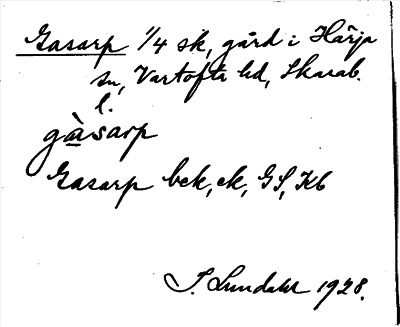 Gasarp 1/4 sk, gård i Härja
sn, Vartofta hd, Skarab.
l.
gàsarp
Gasarp bek, ek, GS, Kb
S. Lundahl 1928.